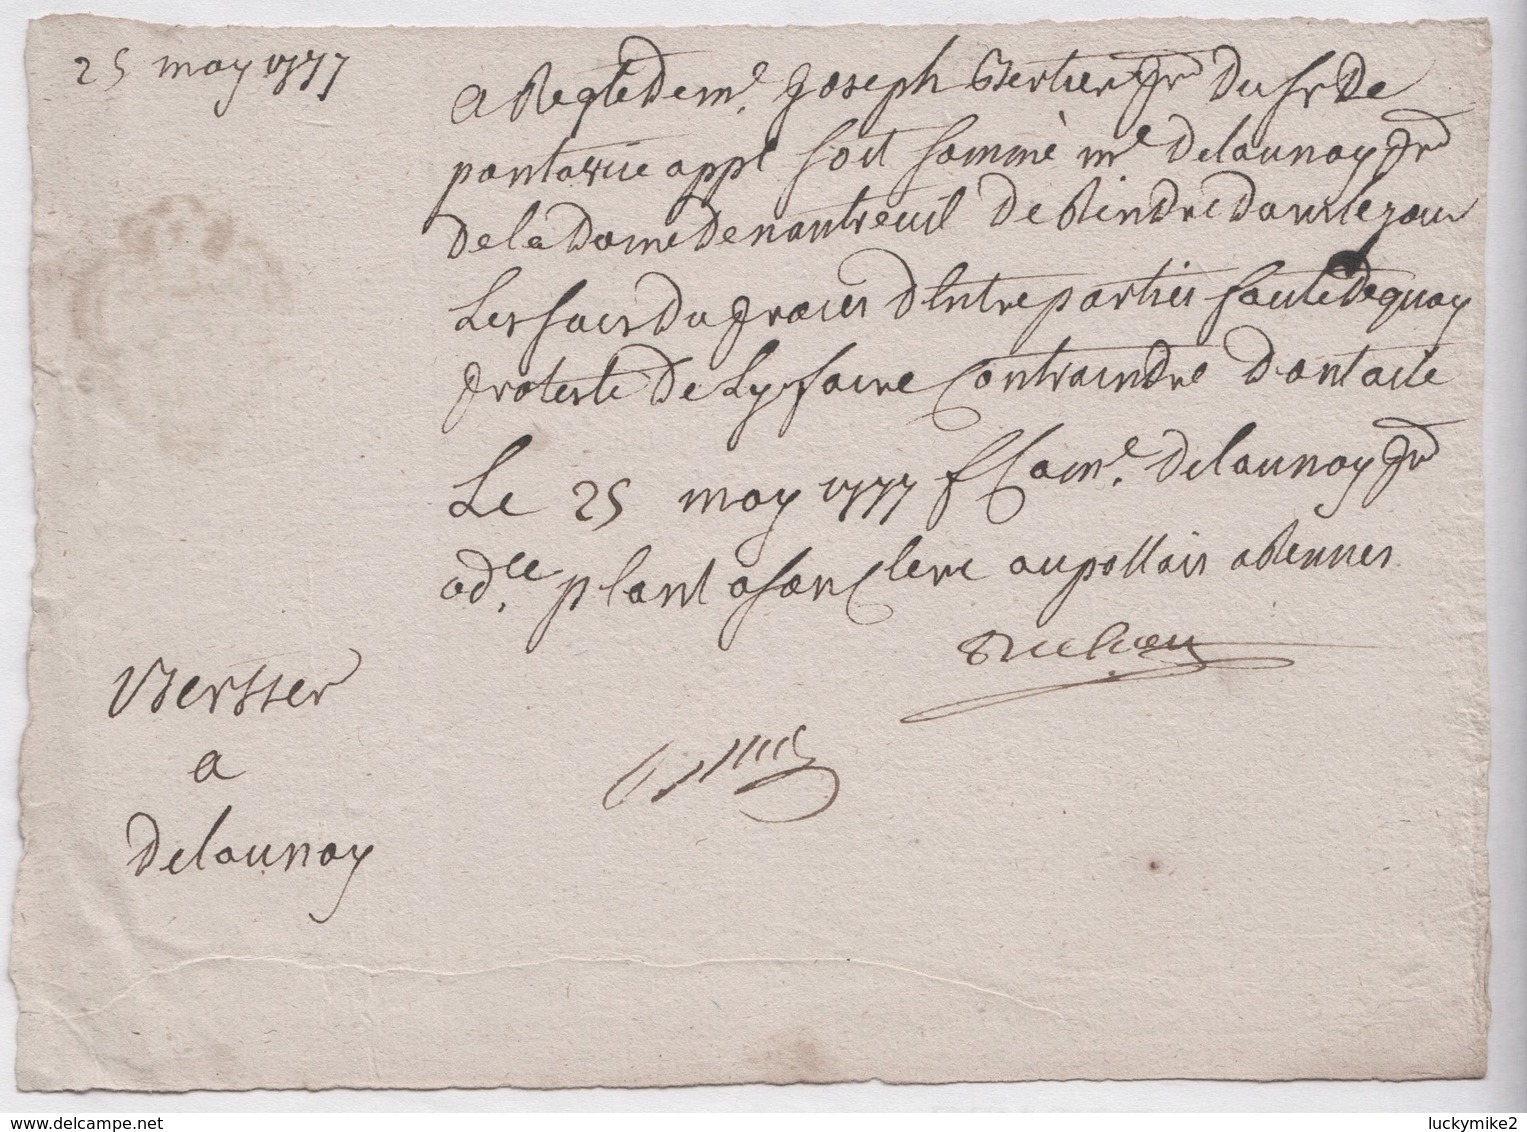 25 may 1777
a Reqte de me. Joseph Bertier pr du Sr De
pontavice appt soit sommé me Delaunay pr
de la Dame De nantreuil de Rendre dans le jour
Les sacs du proces d'Entre parties faute de quoy
proteste de Ly faire Contraindre dont acte
Le 25 may 1777 f Ca me. Delaunay pr
ad.ce plant a son Clerc au pallais a Rennes
Bersser
a
Delaunay
www.delcampe.net
luckymike2